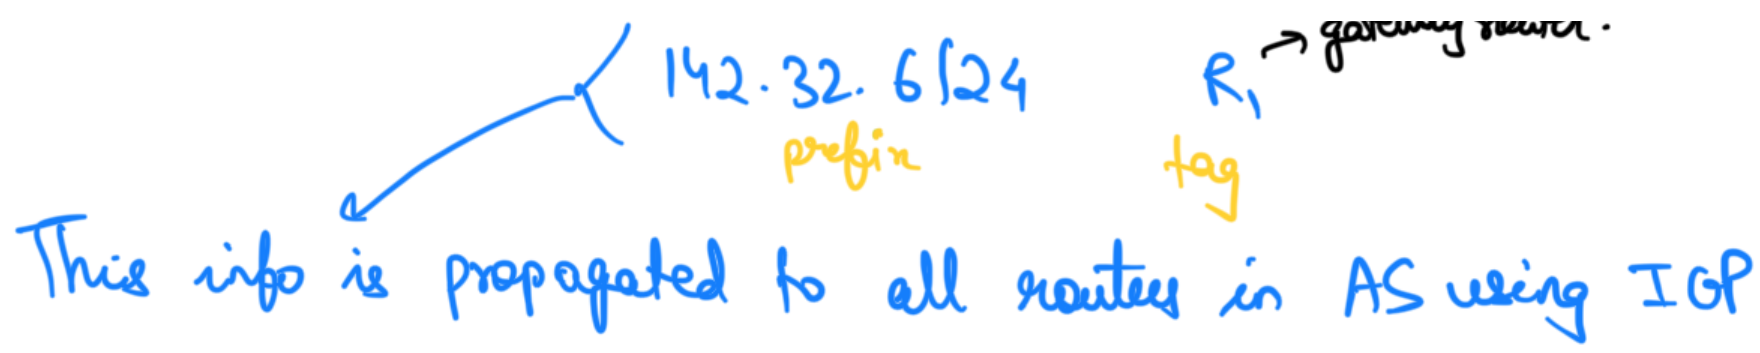 142.32.6/24 R1 → gateway router.
prefix tag
This info is propagated to all routers in AS using IGP